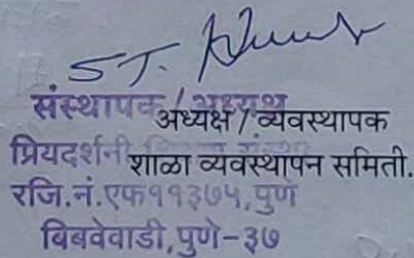 S.T.
संस्थापक / अध्यक्ष
अध्यक्ष / व्यवस्थापक
प्रियदर्शनी
शाळा व्यवस्थापन समिती.
रजि.नं.एफ११३७५,पुणे
बिबवेवाडी,पुणे-३७